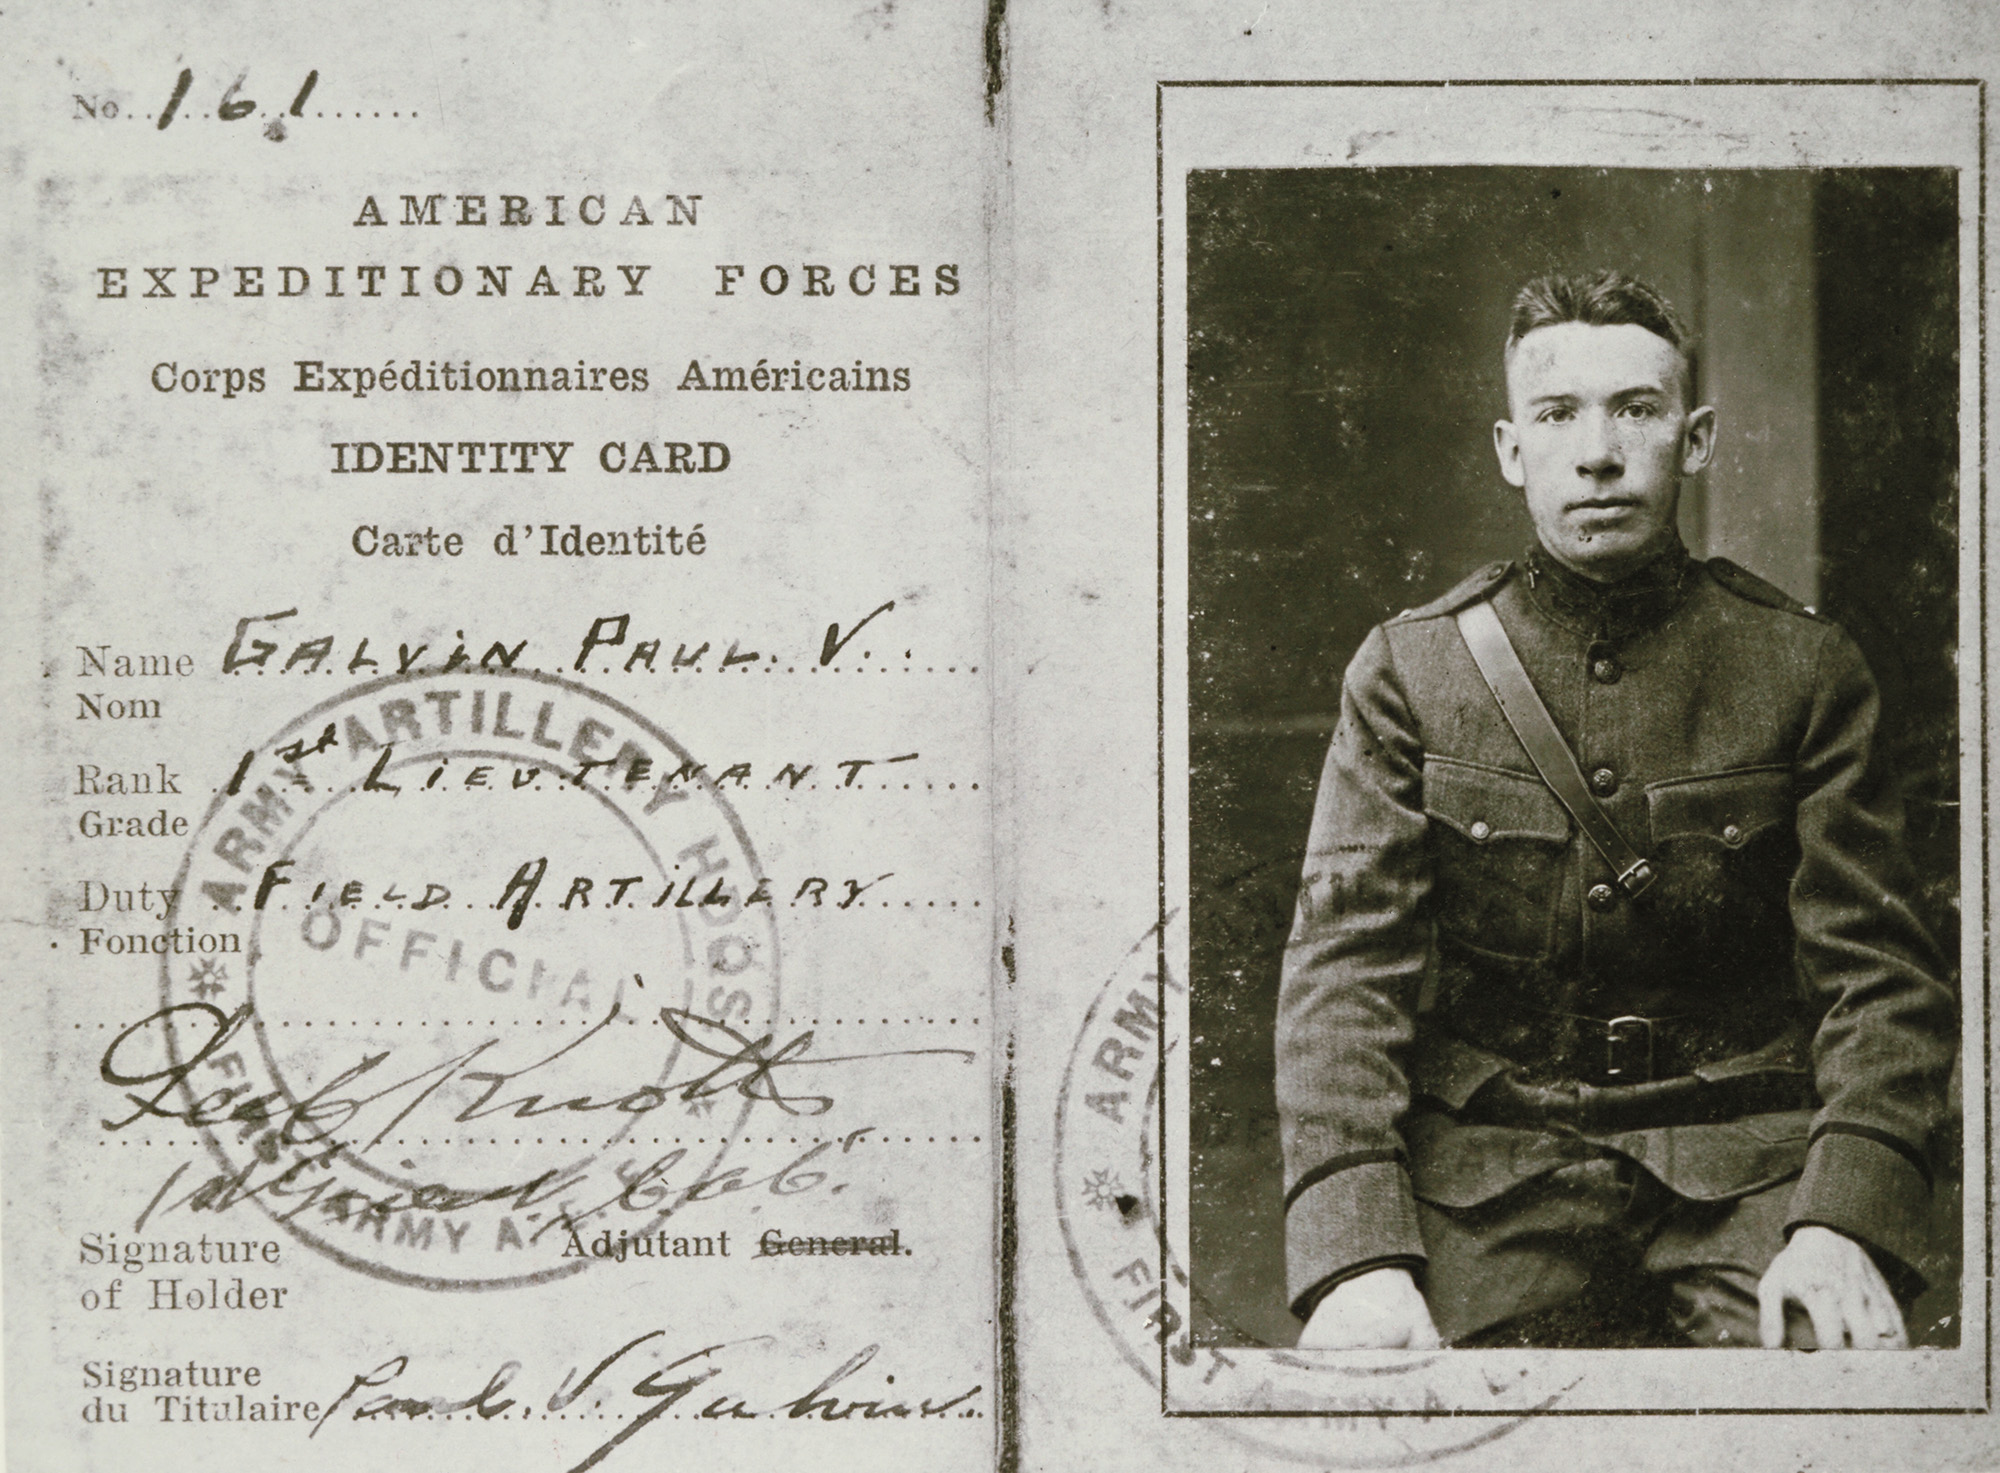 No. 161
AMERICAN
EXPEDITIONARY FORCES
Corps Expéditionnaires Américains
IDENTITY CARD
Carte d'Identité
Name GALVIN PAUL V.
Nom
Rank 1st LIEUTENANT
Grade
Duty FIELD ARTILLERY
Fonction
ARMY ARTILLERY HDQS
OFFICIAL
FIRST ARMY A.
Knott
Adjutant General.
Signature
of Holder
Signature
du Titulaire Paul V. Galvin
ARMY
FIRST ARMY A.